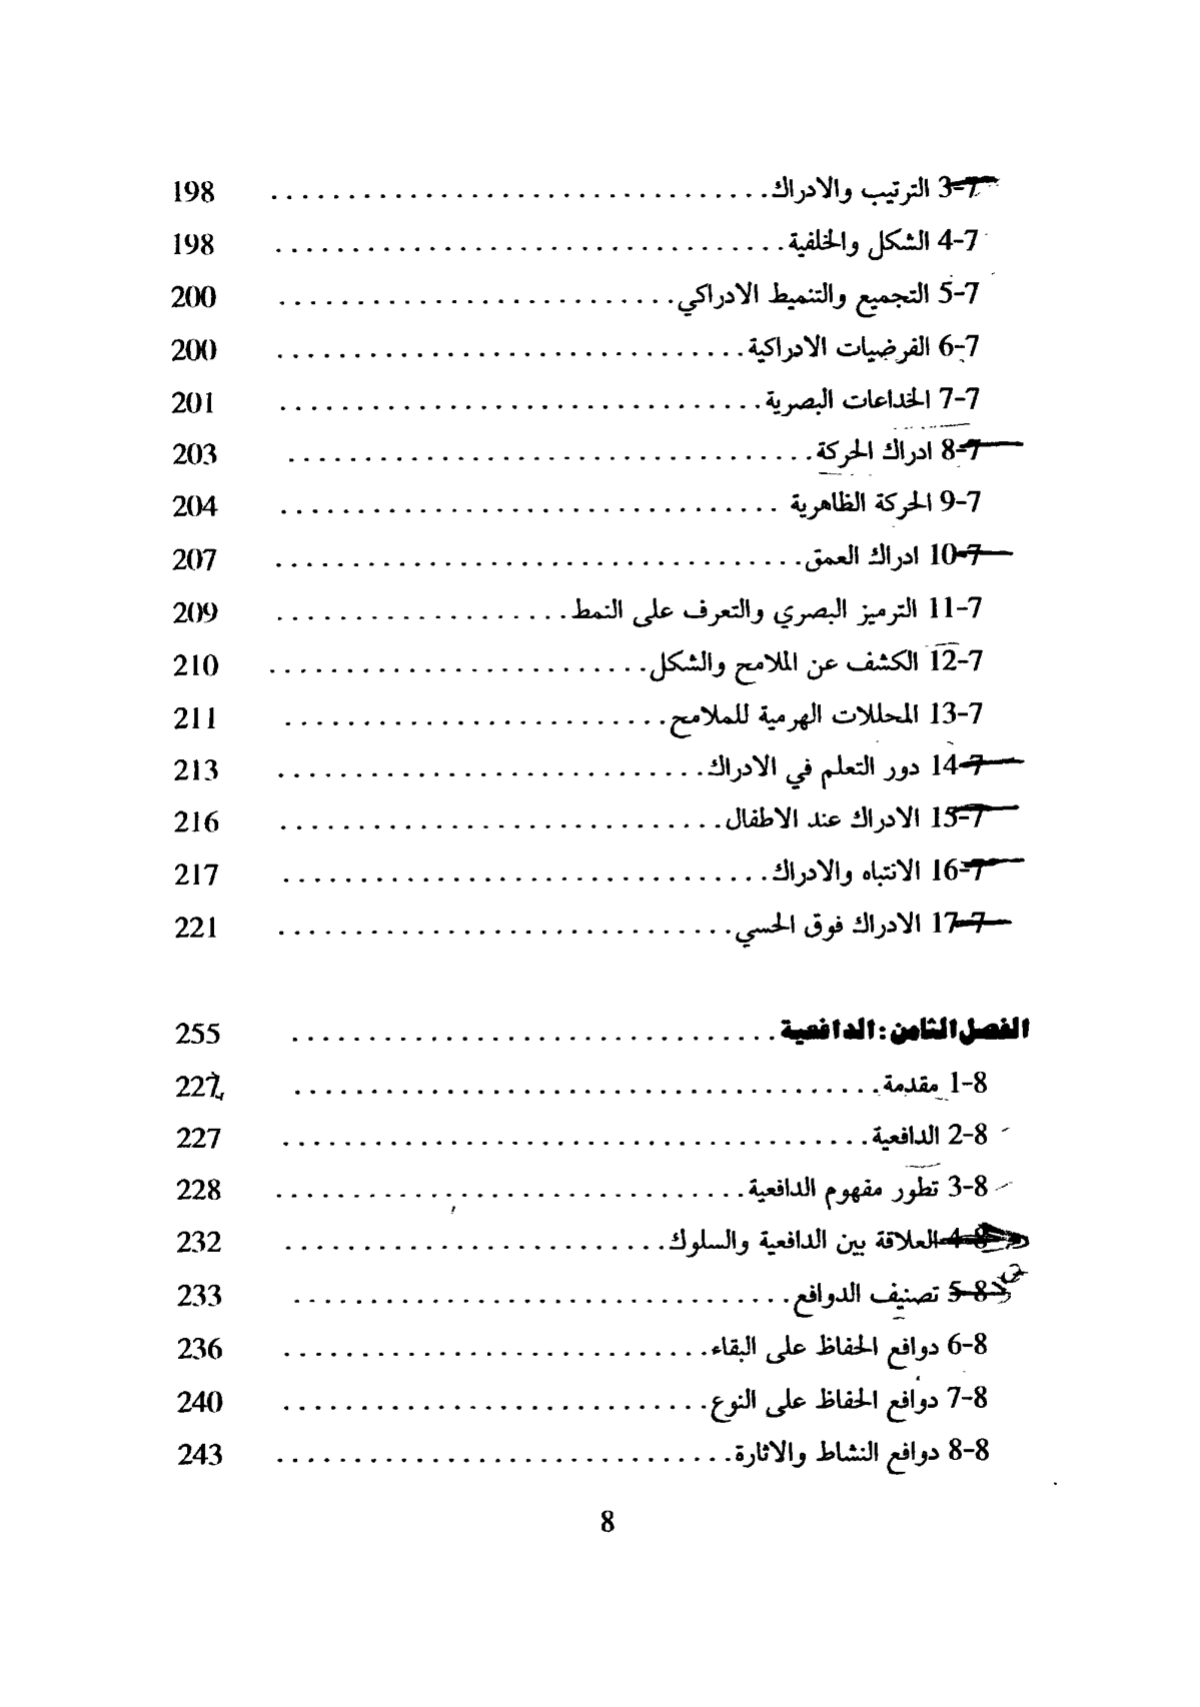 3-7 الترتيب والادراك................................ 198
4-7 الشكل والخلفية................................. 198
5-7 التجميع والتنميط الادراكي.......................... 200
6-7 الفرضيات الادراكية............................... 200
7-7 الخداعات البصرية................................ 201
8-7 ادراك الحركة.................................. 203
9-7 الحركة الظاهرية ................................. 204
10-7 ادراك العمق.................................. 207
11-7 الترميز البصري والتعرف على النمط................... 209
12-7 الكشف عن الملامح والشكل......................... 210
13-7 المحللات الهرمية للملامح......................... 211
14-7 دور التعلم في الادراك............................ 213
15-7 الادراك عند الاطفال............................. 216
16-7 الانتباه والادراك................................ 217
17-7 الادراك فوق الحسي.............................. 221
الفصل الثامن: الدافعية................................ 255
1-8 مقدمة....................................... 227
2-8 الدافعية...................................... 227
3-8 تطور مفهوم الدافعية............................... 228
4-8 العلاقة بين الدافعية والسلوك......................... 232
5-8 تصنيف الدوافع................................. 233
6-8 دوافع الحفاظ على البقاء............................ 236
7-8 دوافع الحفاظ على النوع............................ 240
8-8 دوافع النشاط والاثارة.............................. 243
8